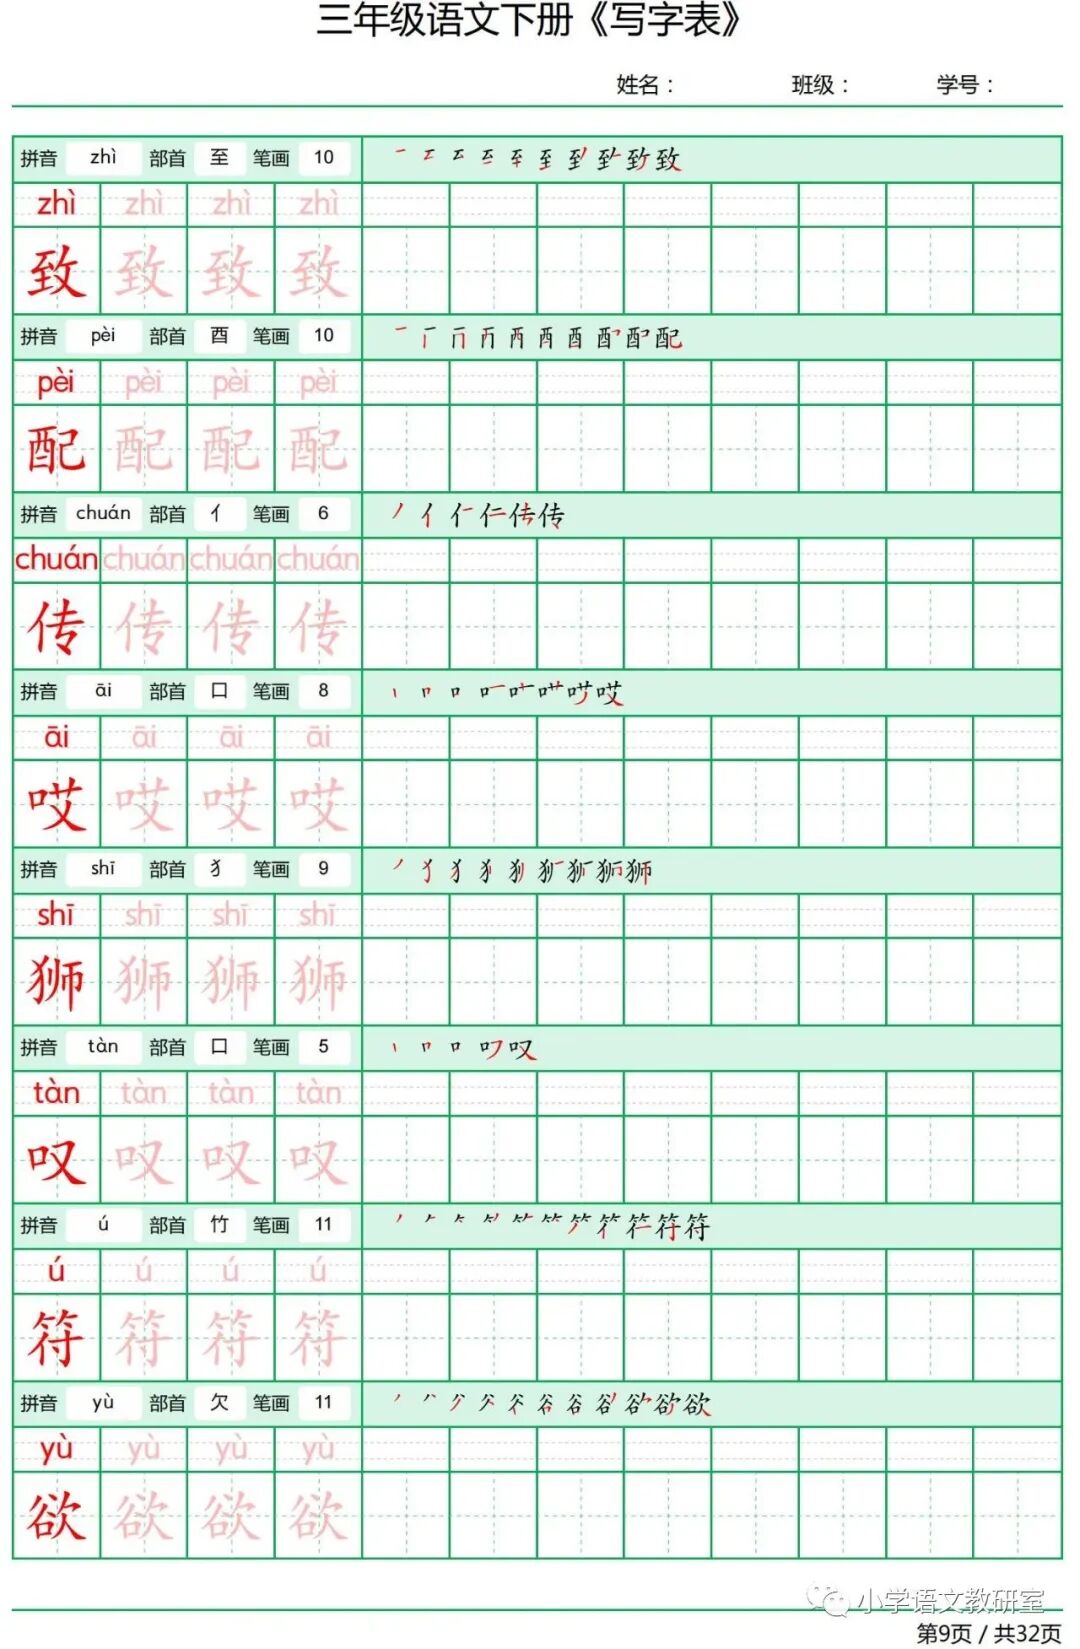 三年级语文下册《写字表》
姓名： 班级： 学号：
拼音 zhì 部首 至 笔画 10
zhì zhì zhì zhì
致 致 致 致
拼音 pèi 部首 酉 笔画 10
pèi pèi pèi pèi
配 配 配 配
拼音 chuán 部首 亻 笔画 6
chuán chuán chuán chuán
传 传 传 传
拼音 āi 部首 口 笔画 8
āi āi āi āi
哎 哎 哎 哎
拼音 shī 部首 犭 笔画 9
shī shī shī shī
狮 狮 狮 狮
拼音 tàn 部首 口 笔画 5
tàn tàn tàn tàn
叹 叹 叹 叹
拼音 ú 部首 竹 笔画 11
ú ú ú ú
符 符 符 符
拼音 yù 部首 欠 笔画 11
yù yù yù yù
欲 欲 欲 欲
小学语文教研室
第9页 / 共32页